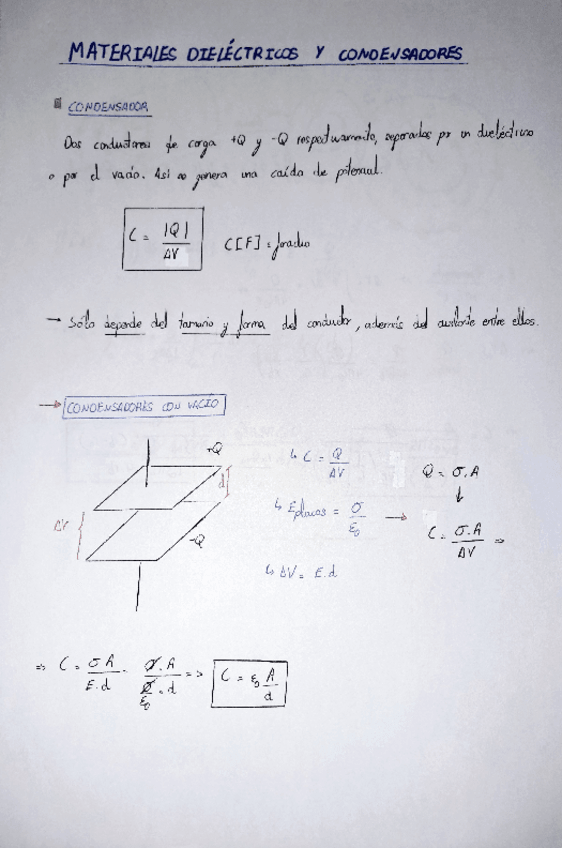 MATERIALES DIELÉCTRICOS Y CONDENSADORES
CONDENSADOR
Dos conductores de carga +Q y -Q respectivamente, separados por un dieléctrico
o por el vacío. Así se genera una caída de potencial.
C = |Q| / ΔV
C[F] = faradio
→ Sólo depende del tamaño y forma del conductor, además del aislante entre ellos.
→ CONDENSADORES CON VACIO
+Q
d
ΔV
-Q
↳ C = Q / ΔV
↳ Eplacas = σ / ε₀ →
↳ ΔV = E.d
Q = σ.A
↓
C = σ.A / ΔV ⇒
⇒ C = σ A / E.d = σ.A / (σ / ε₀ . d) ⇒ C = ε₀ A / d